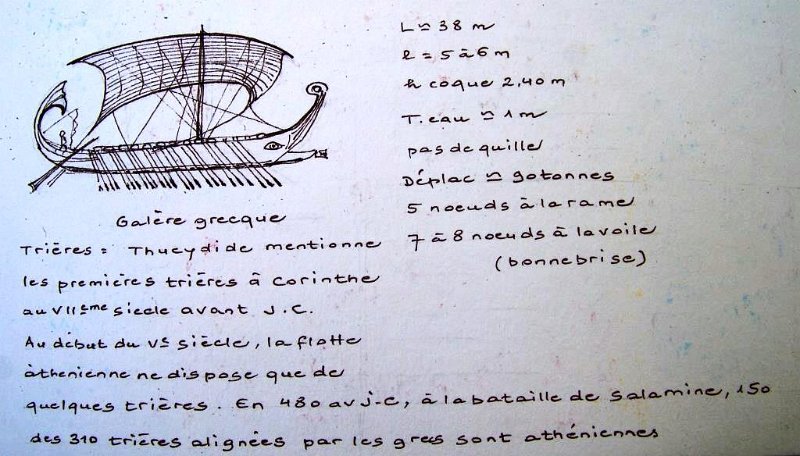 L ≃ 38 m
l = 5 à 6 m
h coque 2,40 m
T. eau ≃ 1 m
pas de quille
Déplac ≃ 90 tonnes
5 noeuds à la rame
7 à 8 noeuds à la voile
(bonne brise)
Galère grecque
Trières = Thucydide mentionne
les premières trières à Corinthe
au VIIème siècle avant J.C.
Au début du Ve siècle, la flotte
athènienne ne dispose que de
quelques trières. En 480 av J-C, à la bataille de Salamine, 150
des 310 trières alignées par les grecs sont athéniennes